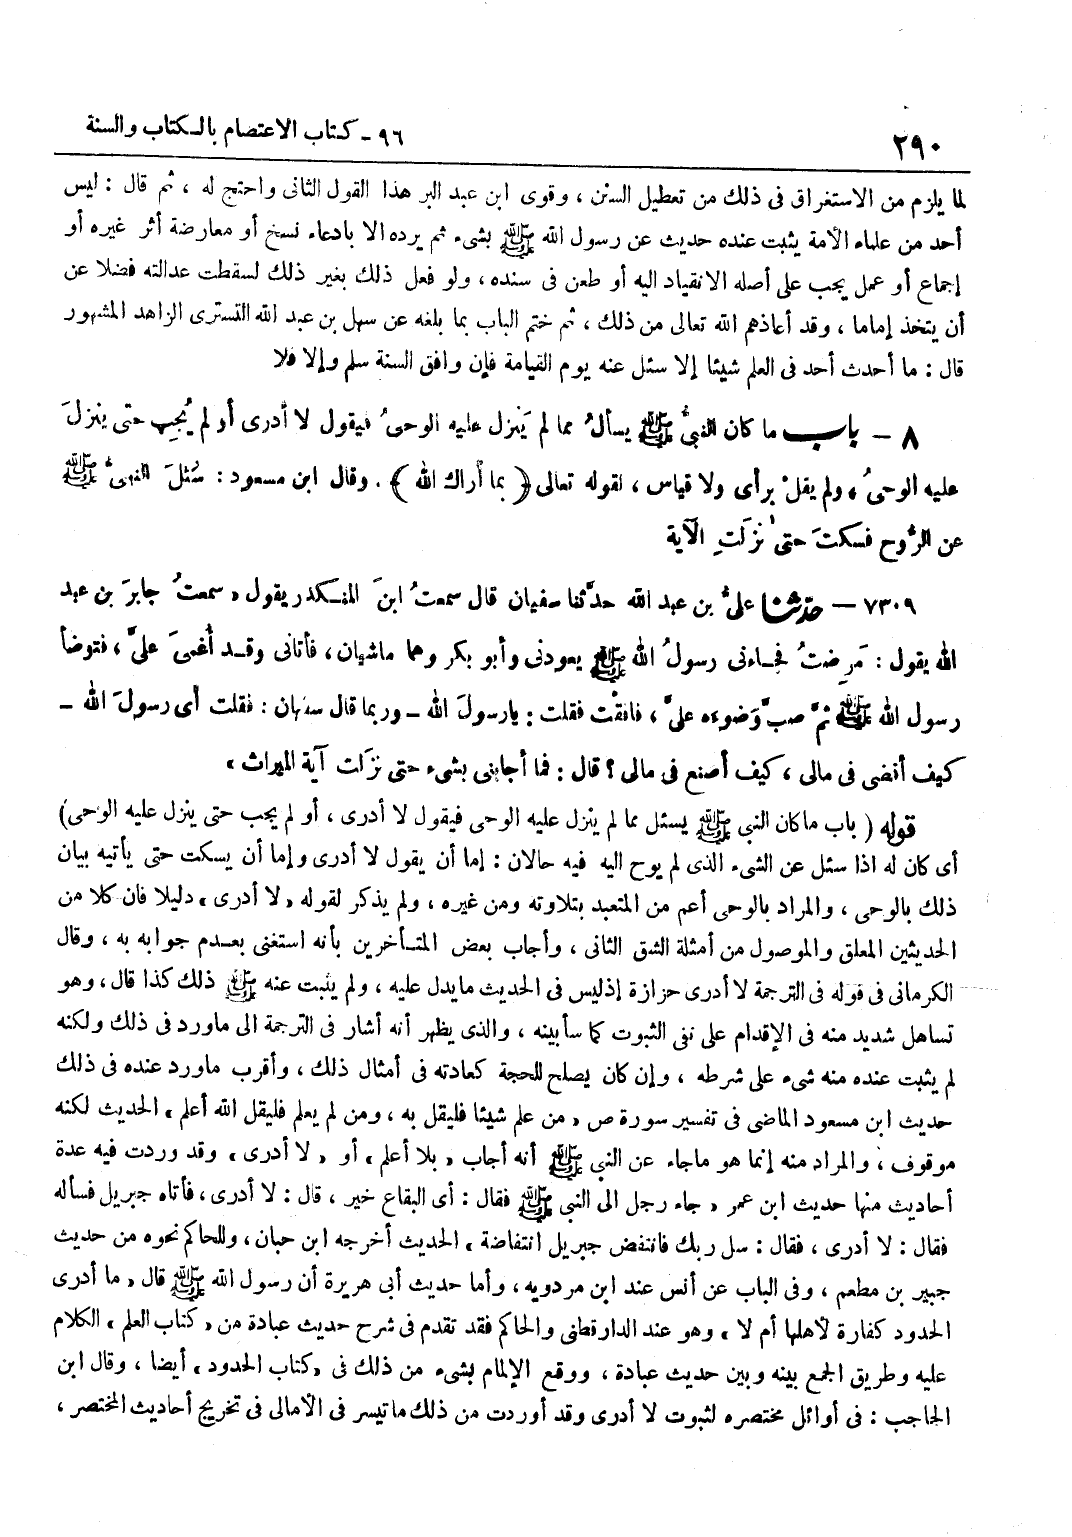 ٢٩٠
٩٦ - كتاب الاعتصام بالكتاب والسنة
لما يلزم من الاستغراق فى ذلك من تعطيل السنن ، وقوى ابن عبد البر هذا القول الثانى واحتج له ، ثم قال : ليس
أحد من علماء الأمة يثبت عنده حديث عن رسول الله ﷺ بشىء ثم يرده الا بادعاء نسخ أو معارضة أثر غيره أو
إجماع أو عمل يجب على أصله الانقياد اليه أو طعن فى سنده ، ولو فعل ذلك بغير ذلك لسقطت عدالته فضلا عن
أن يتخذ إماما ، وقد أعاذهم الله تعالى من ذلك ، ثم ختم الباب بما بلغه عن سهل بن عبد الله التسترى الزاهد المشهور
قال : ما أحدث أحد فى العلم شيئا إلا سئل عنه يوم القيامة فإن وافق السنة سلم وإلا فلا
٨ – باب ما كان النبىُّ ﷺ يسألُ مما لم يَنزل عليه الوحىُ فيقول لا أدرى أو لم يُجِب حتى ينزلَ
عليه الوحىُ ، ولم يقلْ برأى ولا قياس ، لقوله تعالى ﴿ بما أراك الله ﴾ . وقال ابن مسعود : سُئلَ النبىُّ ﷺ
عن الرُّوح فسكتَ حتى نزلَتِ الآية
٧٣٠٩ – حدّثنا علىُّ بن عبد الله حدَّثنا سفيان قال سمعتُ ابنَ المنكدر يقول « سمعتُ جابرَ بن عبد
الله يقول : مَرِضتُ فجاءنى رسولُ الله ﷺ يعودنى وأبو بكر وهما ماشيان ، فأتانى وقد أُغمىَ علىَّ ، فتوضأ
رسول الله ﷺ ثمَّ صبَّ وَضوءه علىَّ ، فافقْت فقلت : يارسولَ الله – وربما قال سفيان : فقلت أى رسولَ الله –
كيف أقضى فى مالى ، كيف أصنع فى مالى ؟ قال : فما أجابنى بشىء حتى نزلت آية الميراث »
قوله ( باب ما كان النبى ﷺ يسئل مما لم ينزل عليه الوحى فيقول لا أدرى ، أو لم يجب حتى ينزل عليه الوحى )
أى كان له اذا سئل عن الشىء الذى لم يوح اليه فيه حالان : إما أن يقول لا أدرى وإما أن يسكت حتى يأتيه بيان
ذلك بالوحى ، والمراد بالوحى أعم من المتعبد بتلاوته ومن غيره ، ولم يذكر لقوله « لا أدرى » دليلا فان كلا من
الحديثين المعلق والموصول من أمثلة الشق الثانى ، وأجاب بعض المتأخرين بأنه استغنى بعدم جوابه به ، وقال
الكرمانى فى قوله فى الترجمة لا أدرى حزازة إذليس فى الحديث مايدل عليه ، ولم يثبت عنه ﷺ ذلك كذا قال ، وهو
تساهل شديد منه فى الإقدام على نفى الثبوت كما سأبينه ، والذى يظهر أنه أشار فى الترجمة الى ماورد فى ذلك ولكنه
لم يثبت عنده منه شىء على شرطه ، وإن كان يصلح للحجة كعادته فى أمثال ذلك ، وأقرب ماورد عنده فى ذلك
حديث ابن مسعود الماضى فى تفسير سورة ص « من علم شيئا فليقل به ، ومن لم يعلم فليقل الله أعلم » الحديث لكنه
موقوف ، والمراد منه إنما هو ماجاء عن النبى ﷺ أنه أجاب « بلا أعلم » أو « لا أدرى » وقد وردت فيه عدة
أحاديث منها حديث ابن عمر « جاء رجل الى النبى ﷺ فقال : أى البقاع خير ، قال : لا أدرى ، فأتاه جبريل فسأله
فقال : لا أدرى ، فقال : سل ربك فانتفض جبريل انتفاضة » الحديث أخرجه ابن حبان ، وللحاكم نحوه من حديث
جبير بن مطعم ، وفى الباب عن أنس عند ابن مردويه ، وأما حديث أبى هريرة أن رسول الله ﷺ قال « ما أدرى
الحدود كفارة لأهلها أم لا » وهو عند الدارقطنى والحاكم فقد تقدم فى شرح حديث عبادة من « كتاب العلم » الكلام
عليه وطريق الجمع بينه وبين حديث عبادة ، ووقع الإلمام بشىء من ذلك فى « كتاب الحدود » أيضا ، وقال ابن
الحاجب : فى أوائل مختصره لثبوت لا أدرى وقد أوردت من ذلك ماتيسر فى الأمالى فى تخريج أحاديث المختصر ،